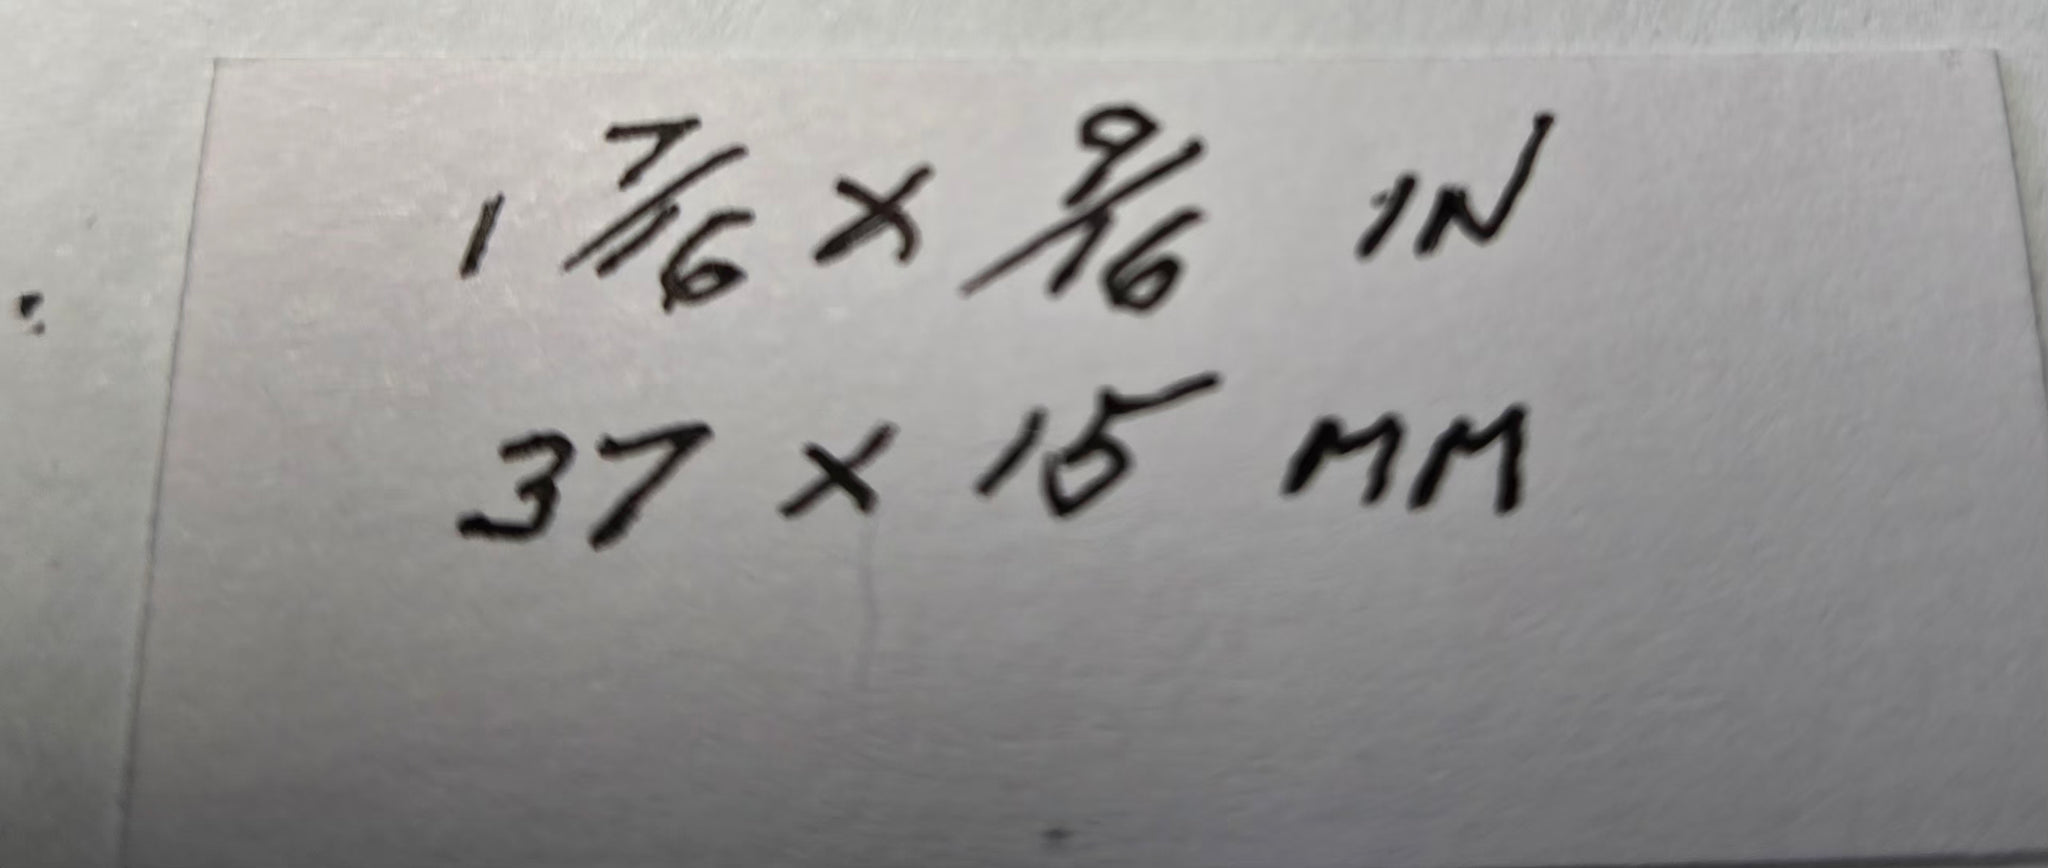 1 7/16 x 9/16 IN
37 x 15 MM